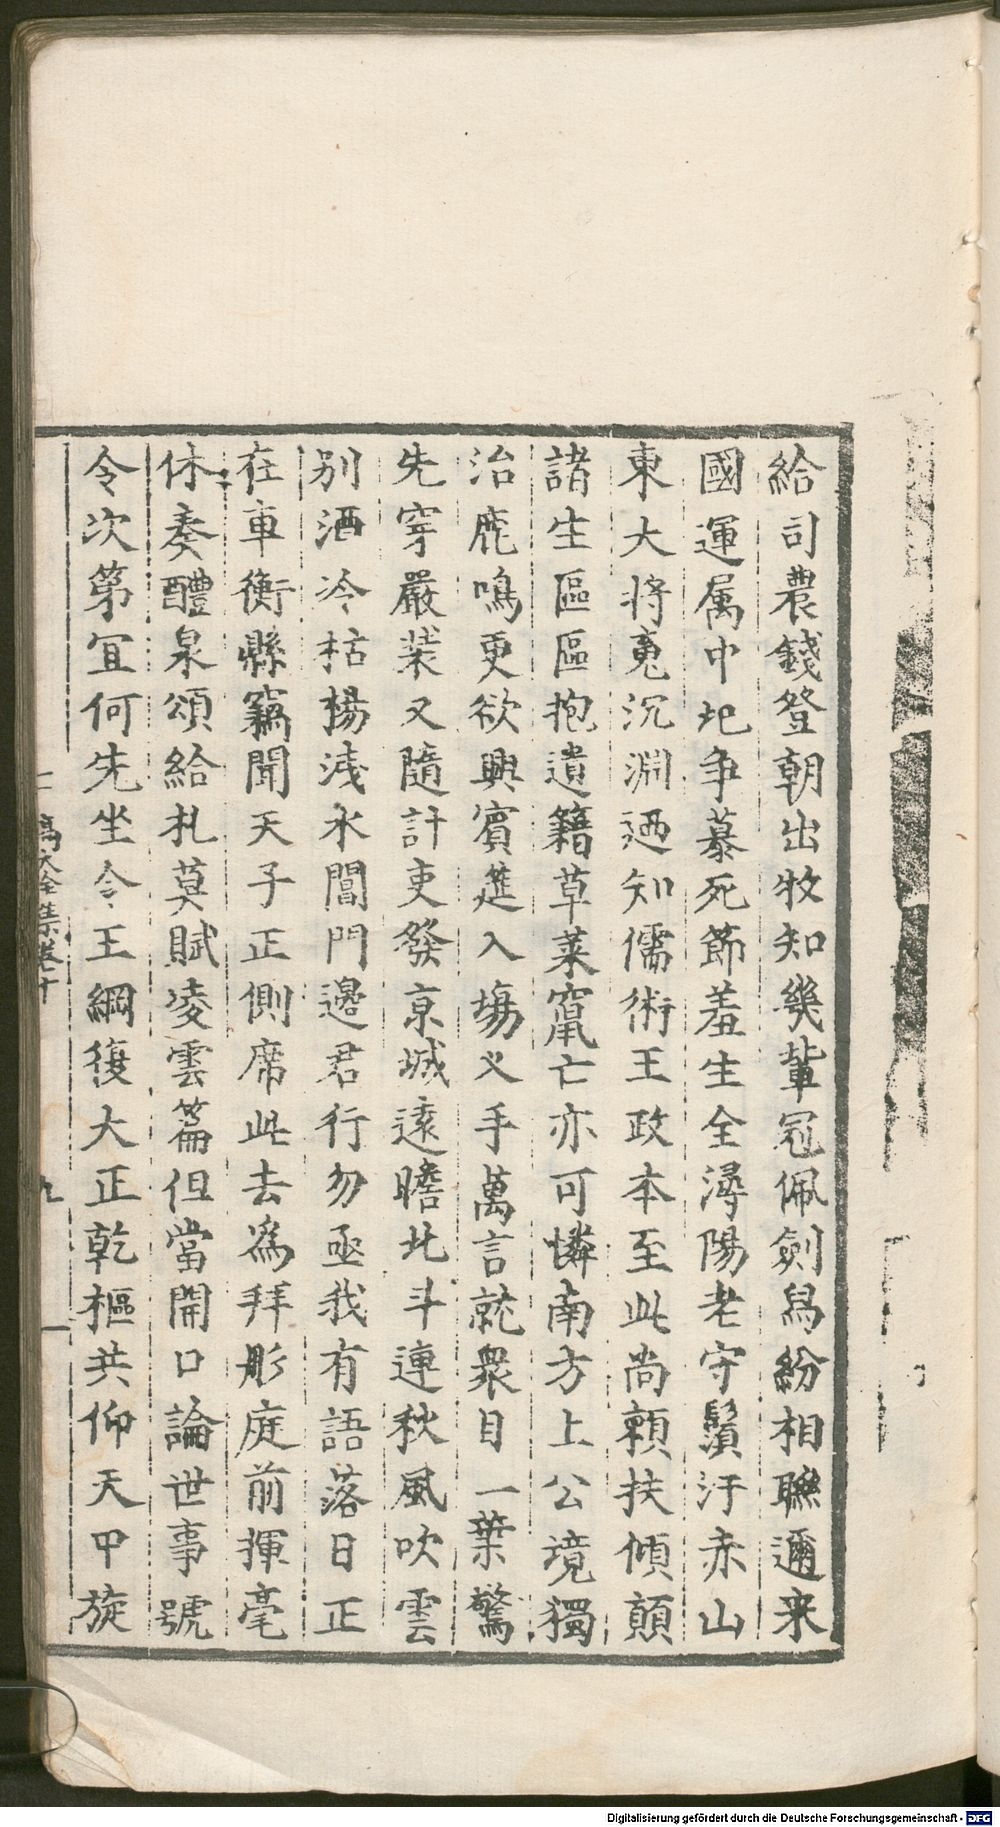 給司農錢登朝出牧知幾軰冠佩劍舄紛相聯邇来
國運属中圮争慕死節羞生全潯陽老守鬚汙赤山
東大将寃沉淵迺知儒術王政本至此尚頼扶傾顛
諸生區區抱遺籍草萊竄亡亦可憐南方上公境獨
治鹿鳴更欲興賓莚入塲义手萬言就衆目一葉驚
先穿嚴裝又隨計吏發京城遠瞻北斗連秋風吹雲
别酒冷枯楊淺水閶門邉君行勿亟我有語落日正
在車衡縣竊聞天子正側席此去為拜彤庭前揮毫
休奏醴泉頌給札莫賦凌雲篇但當開口論世事號
令次第宜何先坐令王綱復大正乾樞共仰天中旋
高大全集卷十
九
Digitalisierung gefördert durch die Deutsche Forschungsgemeinschaft - DFG